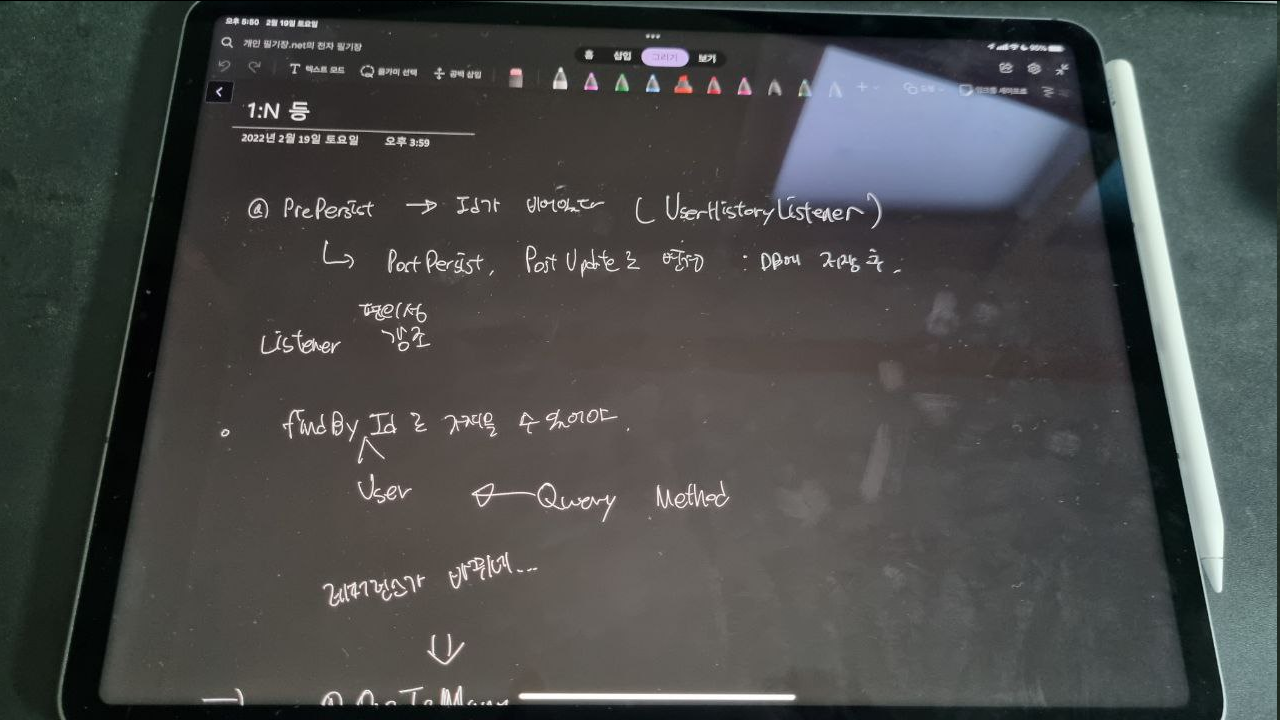 오후 5:50 2월 19일 토요일
95%
개인 필기장.net의 전자 필기장
홈 삽입 그리기 보기
텍스트 모드 올가미 선택 공백 삽입
1:N 등
2022년 2월 19일 토요일 오후 3:59
@ PrePersist → Id가 비어있다 (UserHistoryListener)
↳ PostPersist, PostUpdate로 변경 : DB에 저장 후.
편의성
Listener 강조
findBy Id로 가져올 수 있어야.
User ← Query Method
레퍼런스가 바뀌네...
⇓
@OneToMany